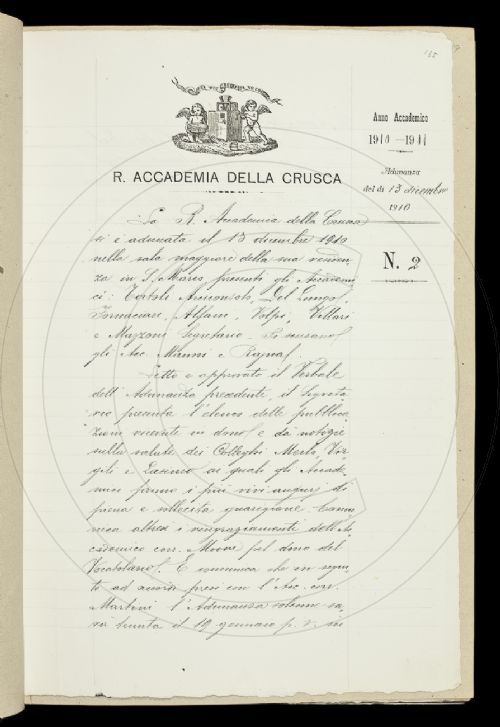 135
R. ACCADEMIA DELLA CRUSCA
Anno Accademico
1910–1911
Adunanza
del dì 13 dicembre
1910
N. 2
La R. Accademia della Crusca
si è adunata il 13 dicembre 1910
nella sala maggiore della sua residen-
za in S. Marco presenti gli Accademi-
ci: Tortoli Arciconsolo, Del Lungo,
Fornaciari, Alfani, Volpi, Villari
e Mazzoni Segretario. Si scusano
gli Acc. e Rajna.
Letto e approvato il Verbale
dell'Adunanza precedente, il Segreta-
rio presenta l'elenco delle pubblica-
zioni ricevute in dono e dà notizie
sulla salute dei Colleghi Merlo, Vir-
gili e ai quali gli Accade-
mici fanno i più vivi auguri di
piena e sollecita guarigione. Comu-
nica altresì i ringraziamenti dell'Ac-
cademico corr. pel dono del
Vocabolario. E comunica che in segui-
to ad accordi presi con l'Acc. corr.
Martini l'Adunanza solenne sa-
rà tenuta il 19 gennaio p. v. in